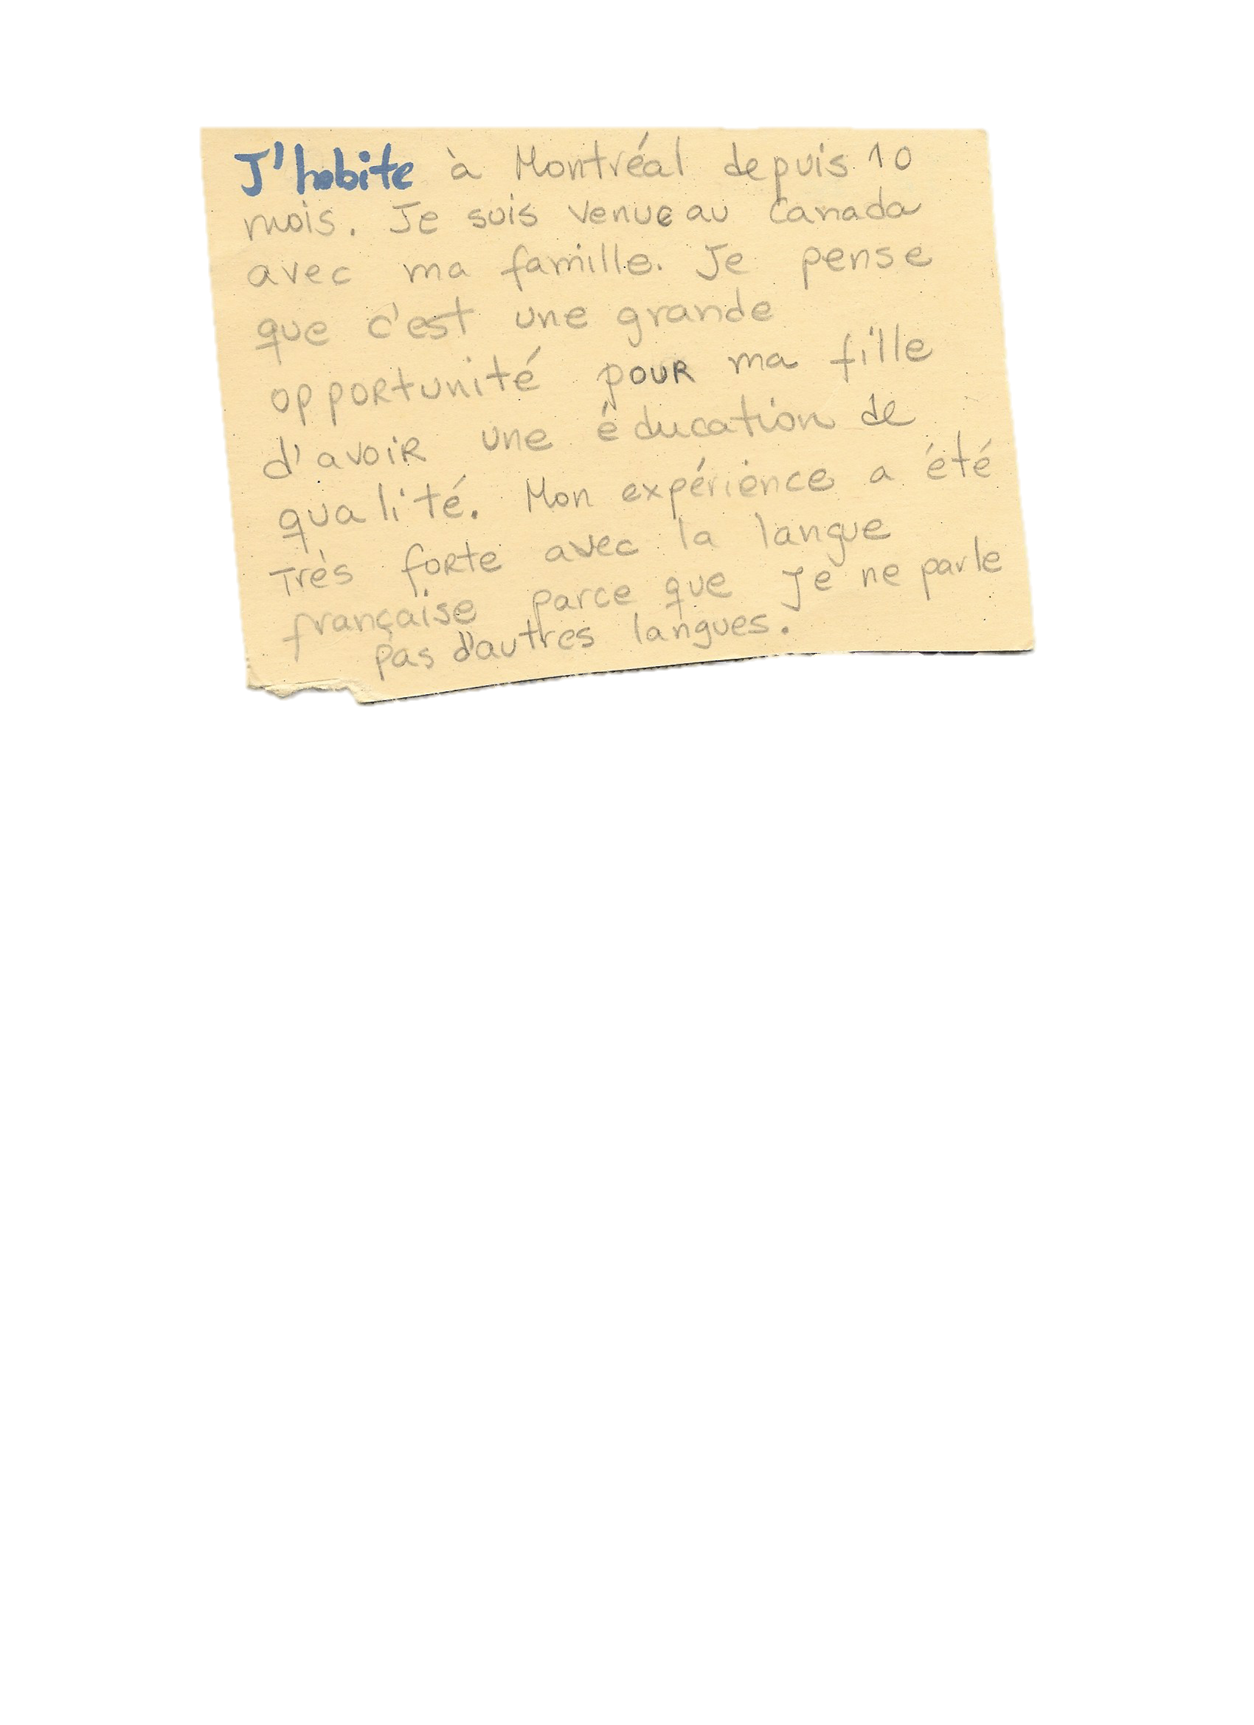 J'habite à Montréal depuis 10
mois. Je suis venue au Canada
avec ma famille. Je pense
que c'est une grande
opportunité pour ma fille
d'avoir une éducation de
qualité. Mon expérience a été
Très forte avec la langue
française parce que Je ne parle
pas d'autres langues.